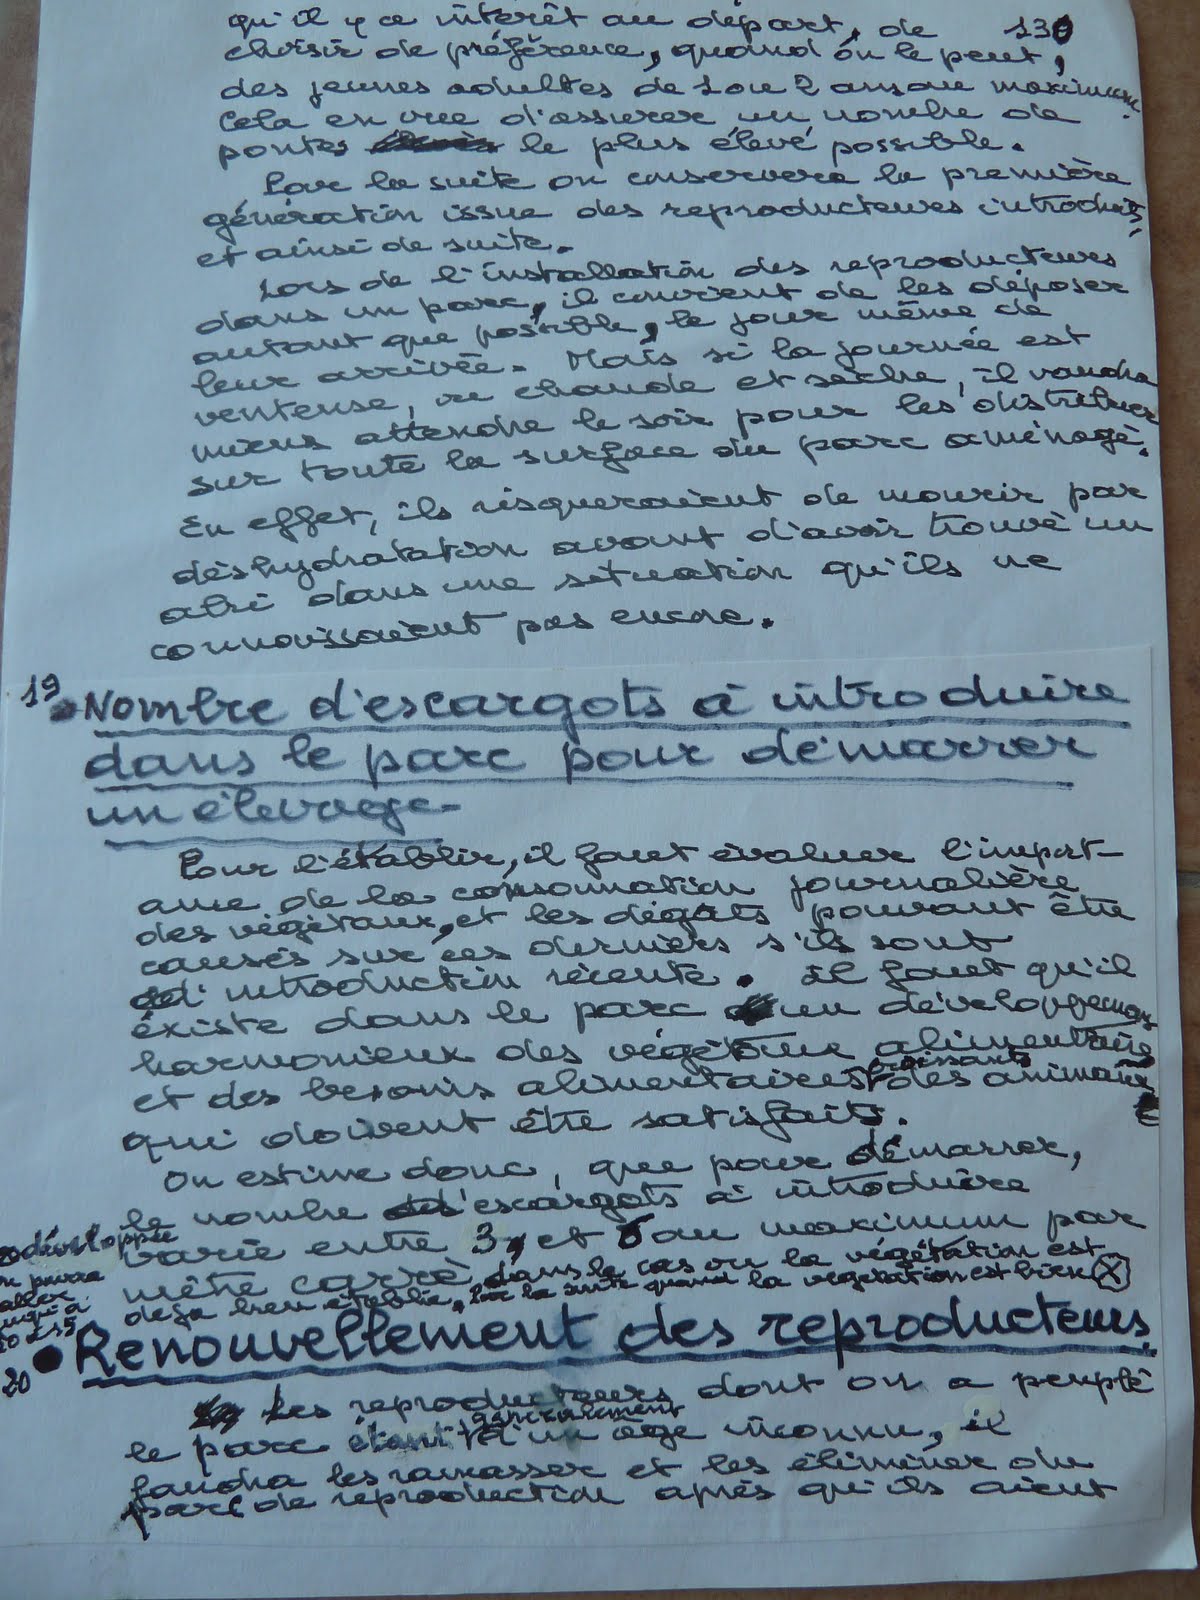 qu'il y a intérêt au départ, de 130
choisir de préférence, quand on le peut,
des jeunes adultes de 1 ou 2 ans au maximum.
Cela en vue d'assurer un nombre de
pontes le plus élevé possible.
Par la suite on conservera la première
génération issue des reproducteurs introduits,
et ainsi de suite.
Lors de l'installation des reproducteurs
dans un parc, il convient de les déposer
autant que possible, le jour même de
leur arrivée. Mais si la journée est
venteuse, ou chaude et sèche, il vaudra
mieux attendre le soir pour les distribuer
sur toute la surface du parc aménagé.
En effet, ils risqueraient de mourir par
déshydratation avant d'avoir trouvé un
abri dans une situation qu'ils ne
connaissaient pas encore.
19 Nombre d'escargots à introduire
dans le parc pour démarrer
un élevage-
Pour l'établir, il faut évaluer l'import-
ance de la consommation journalière
des végétaux, et les dégâts pouvant être
causés sur ces derniers s'ils sont
d'introduction récente. Il faut qu'il
éxiste dans le parc un développement
harmonieux des végétaux alimentaires
et des besoins alimentaires croissants des animaux
qui doivent être satisfaits.
On estime donc, que pour démarrer,
le nombre d'escargots à introduire
varie entre 3, et 6 au maximum par
mètre carré, dans le cas ou la végétation est
déja bien établie, Par la suite quand la végétation est bien X
développée
on pourra
aller
jusqu'à
20 • Renouvellement des reproducteurs.
Les reproducteurs dont on a peuplé
le parc étant généralement d'un âge inconnu, il
faudra les ramasser et les éliminer du
parc de reproduction après qu'ils aient